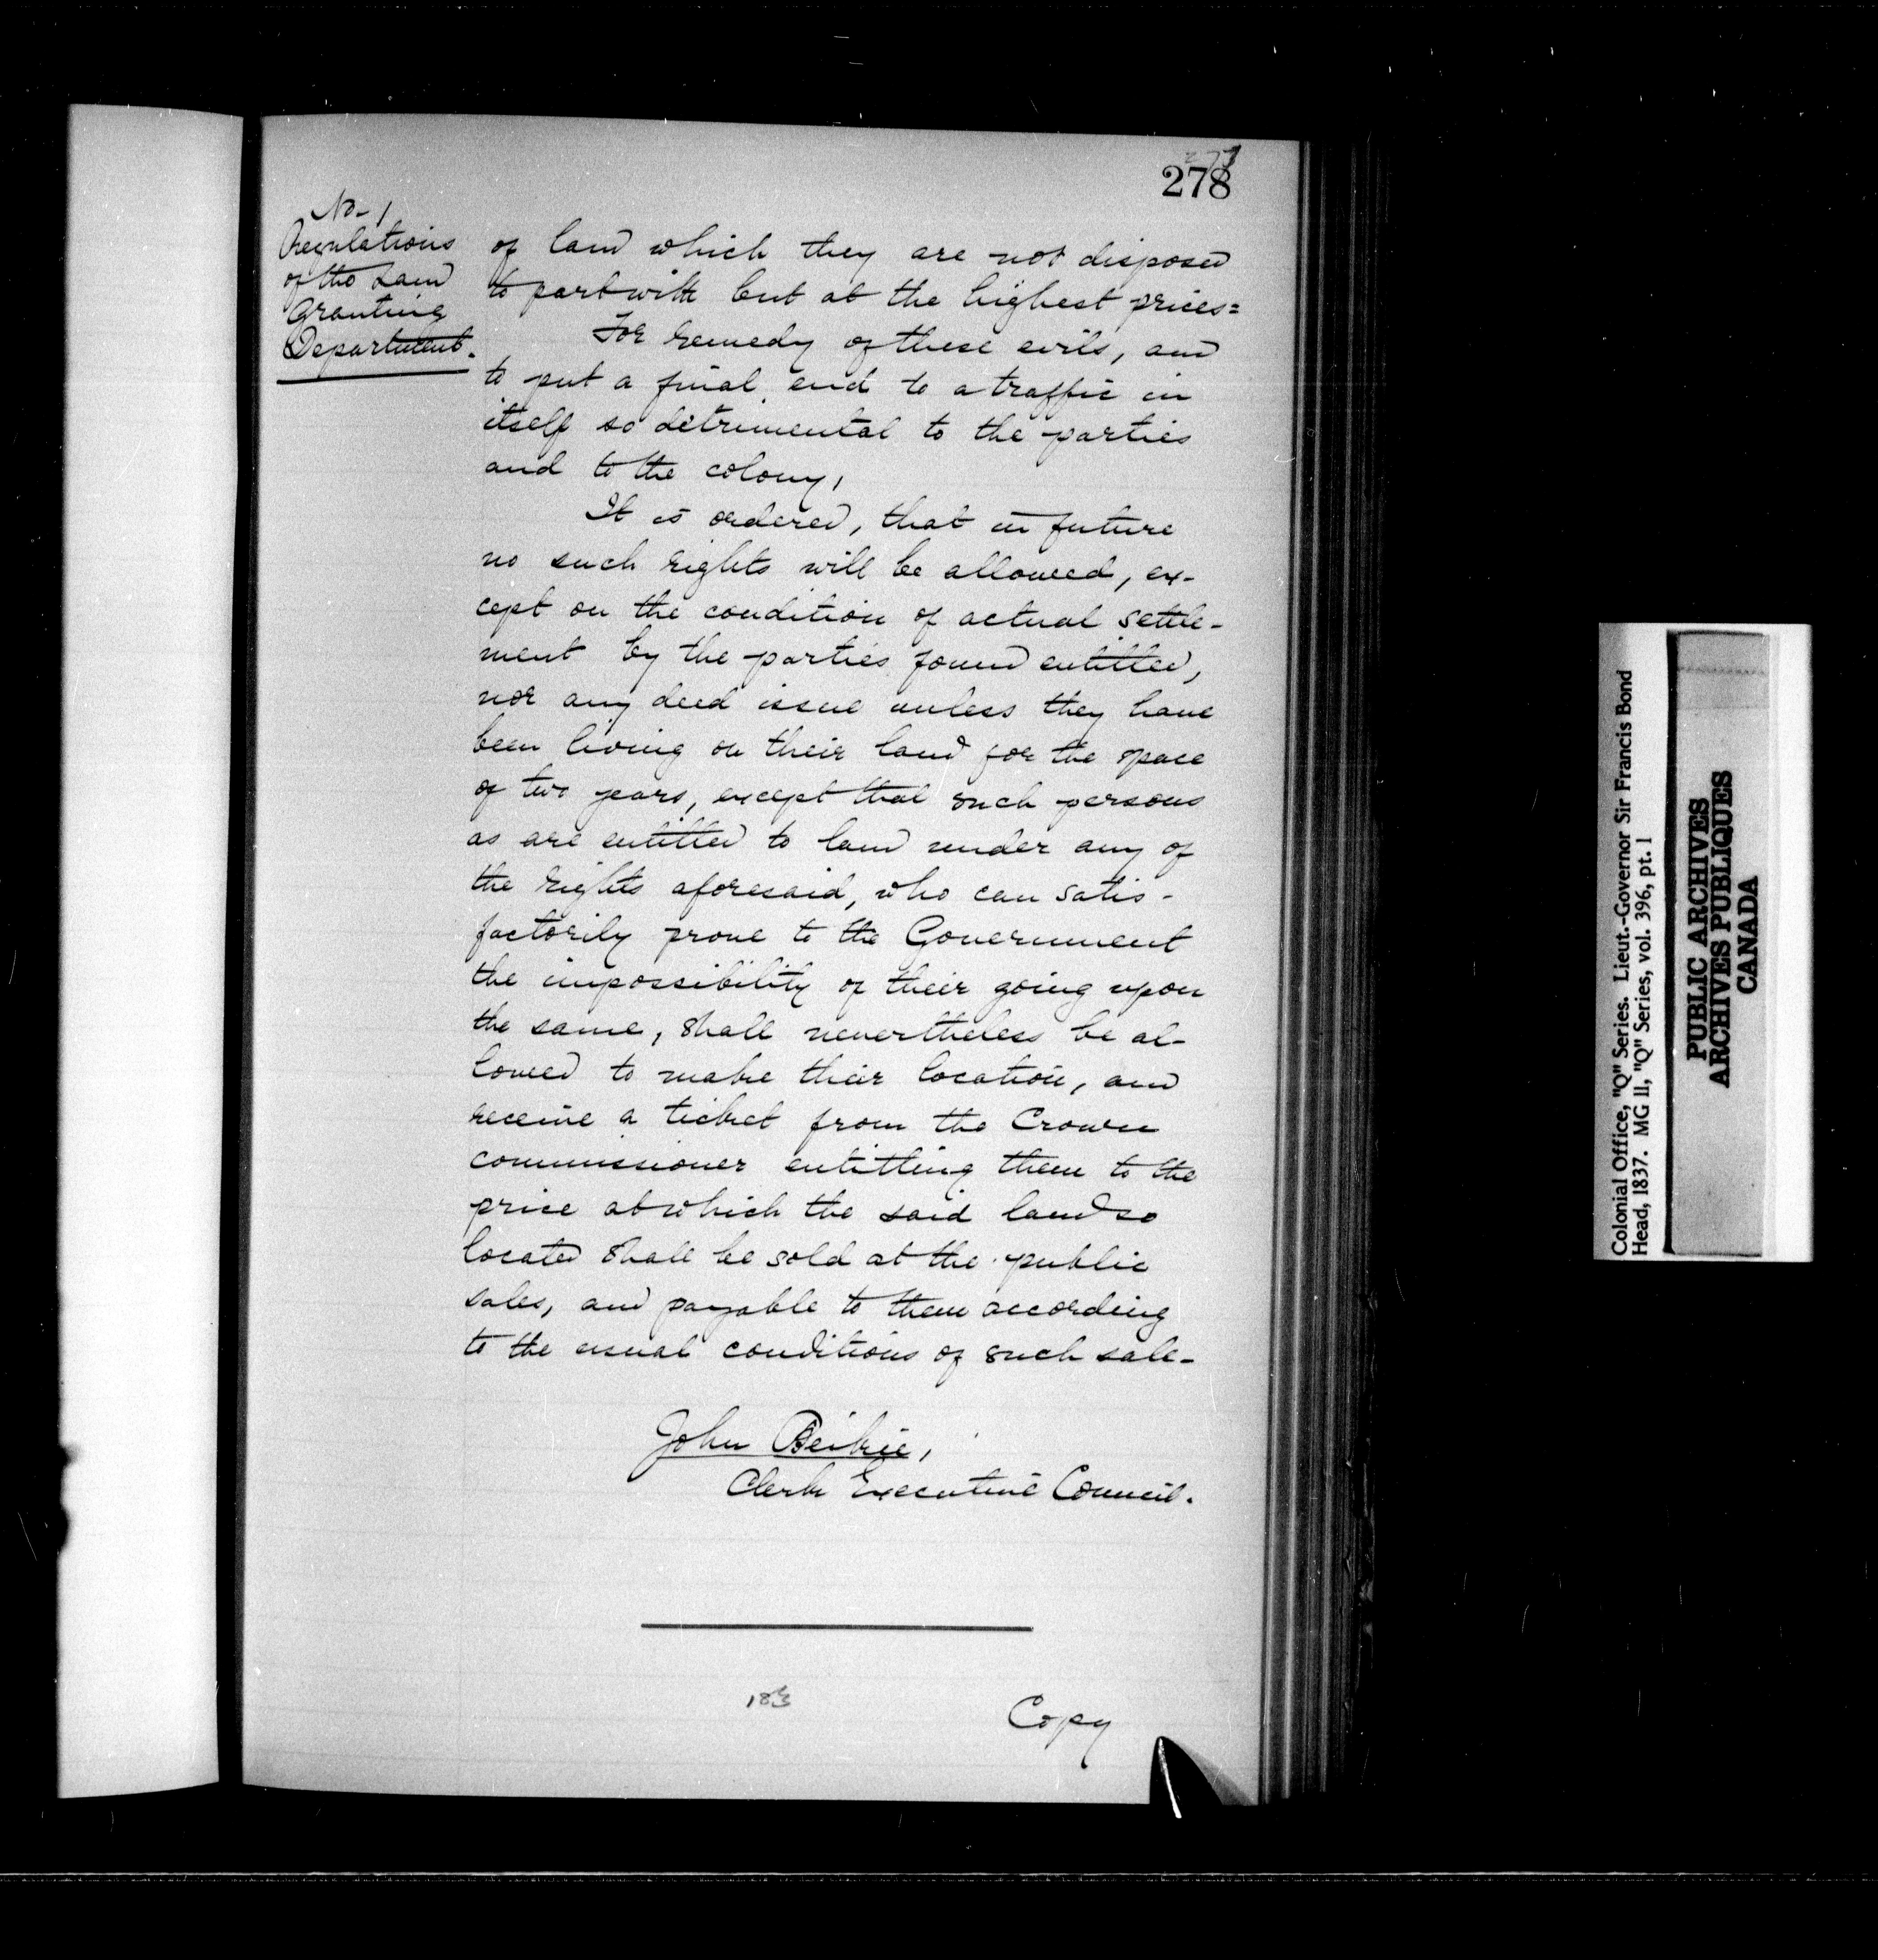 277
278
No. 1
Regulations
of the Land
Granting
Department.
of land which they are not disposed
to part with but at the highest prices=
For remedy of these evils, and
to put a final end to a traffic in
itself so detrimental to the parties
and to the colony,
It is ordered, that in future
no such rights will be allowed, ex-
cept on the condition of actual settle-
ment by the parties found entitled,
nor any deed issue unless they have
been living on their land for the space
of two years, except that such persons
as are entitled to land under any of
the rights aforesaid, who can satis-
factorily prove to the Government
the impossibility of their going upon
the same, shall nevertheless be al-
lowed to make their location, and
receive a ticket from the Crown
commissioner entitling them to the
price at which the said land so
located shall be sold at the public
sales, and payable to them according
to the usual conditions of such sale-
John Beikie,
Clerk Executive Council.
183
Copy
Colonial Office, "Q" Series. Lieut.-Governor Sir Francis Bond
Head, 1837. MG 11, "Q" Series, vol. 396, pt. 1
PUBLIC ARCHIVES
ARCHIVES PUBLIQUES
CANADA